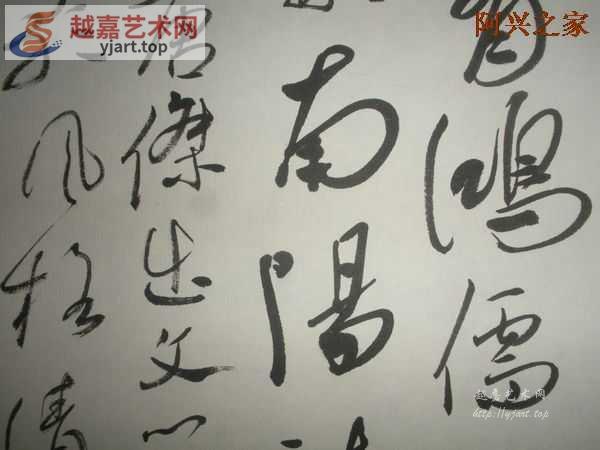 越嘉艺术网
yjart.top
阿兴之家
有鸿儒
南阳
唐杰出文
风格清
越嘉艺术网
http://yjart.top